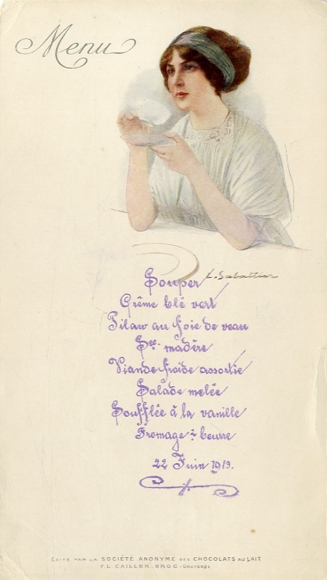 Menu
L. Sabattier
Souper
Crême blé vert
Pilaw au foie de veau
Sce madère
Viande froide assortie
Salade melée
Soufflée à la vanille
Fromage & beurre
22 Juin 1913.
EDITÉ PAR LA SOCIÉTÉ ANONYME DES CHOCOLATS AU LAIT
F. L. CAILLER, BROC - GRUYERES